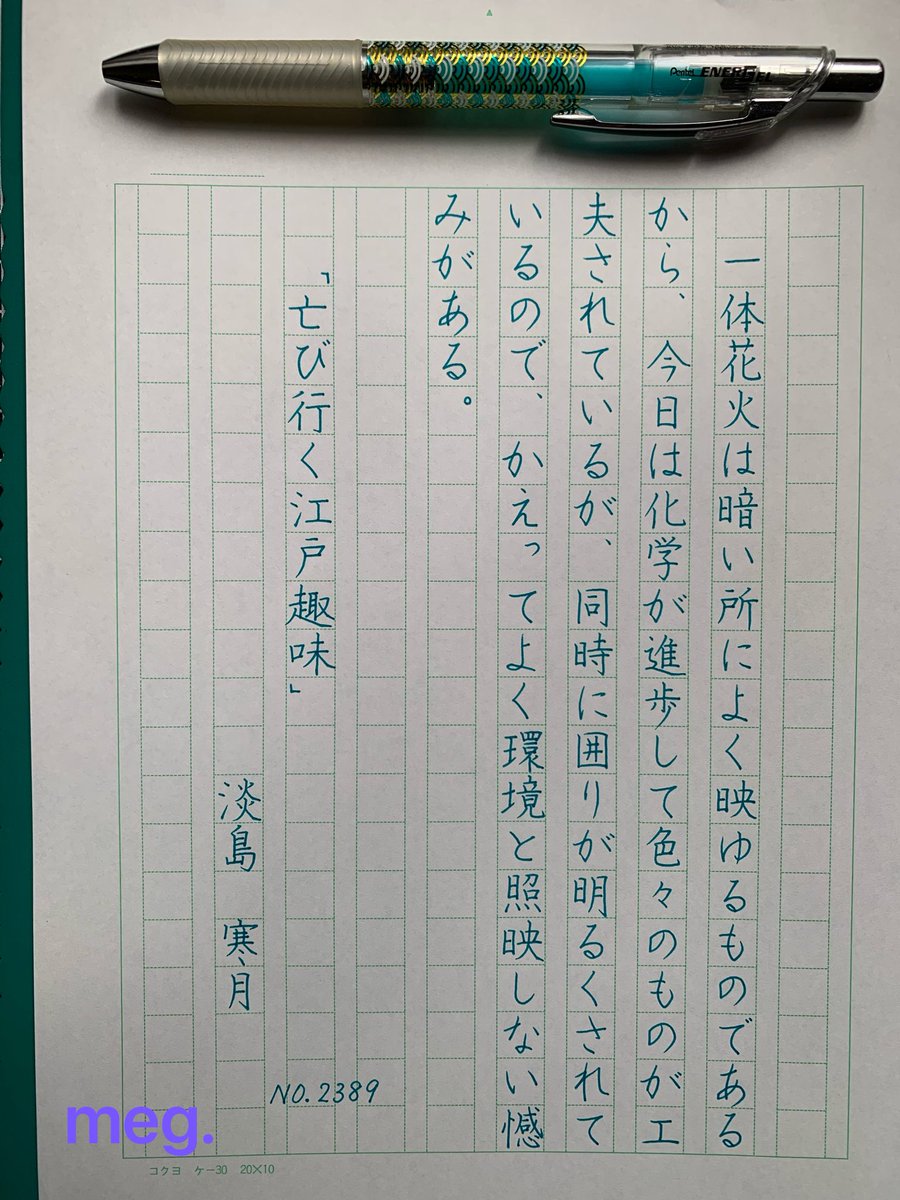 Pentel ENERGEL
一体花火は暗い所によく映ゆるものである
から、今日は化学が進歩して色々のものが工
夫されているが、同時に囲りが明るくされて
いるので、かえってよく環境と照映しない憾
みがある。
「亡び行く江戸趣味」
淡島 寒月
NO.2389
meg.
コクヨ ケー30 20×10